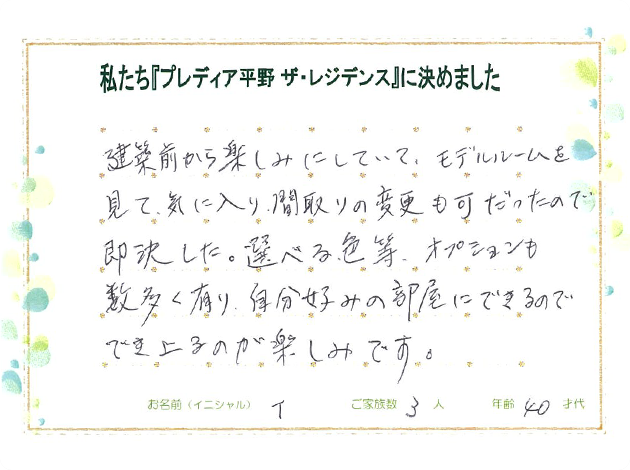 私たち『プレディア平野 ザ・レジデンス』に決めました
建築前から楽しみにしていて、モデルルームを
見て、気に入り、間取りの変更も可だったので
即決した。選べる色等、オプションも
数多く有り、自分好みの部屋にできるので
でき上るのが楽しみです。
お名前（イニシャル） T ご家族数 3 人 年齢 40 才代